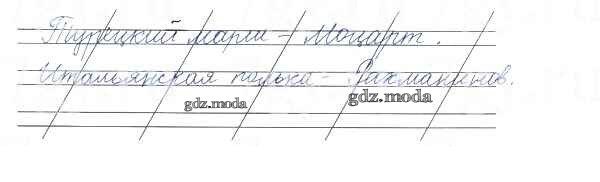 Турецкий марш - Моцарт.
Итальянская полька - Рахманинов.
gdz.moda gdz.moda